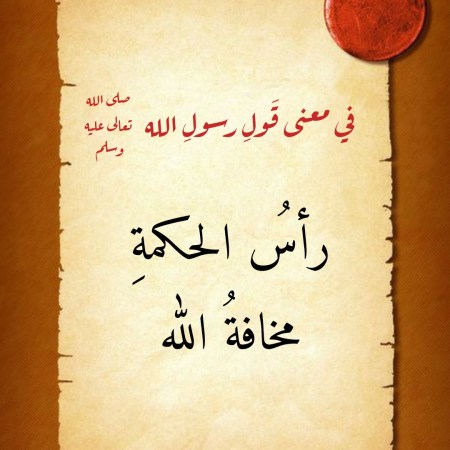 في معنى قَولِ رسولِ الله صلى الله تعالى عليه وسلم
رأسُ الحكمةِ
مخافةُ الله